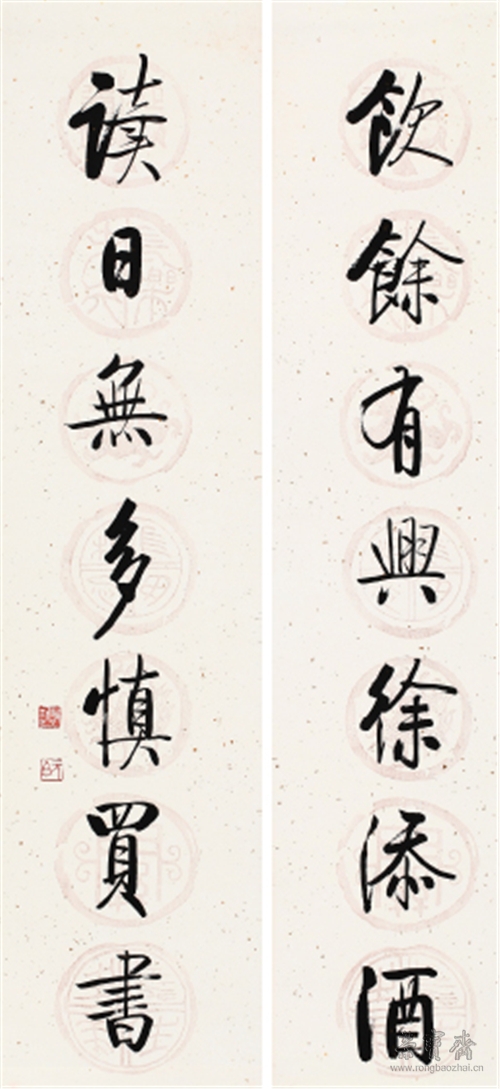 飲餘有興徐添酒
讀日無多慎買書
榮寶齋
www.rongbaozhai.cn